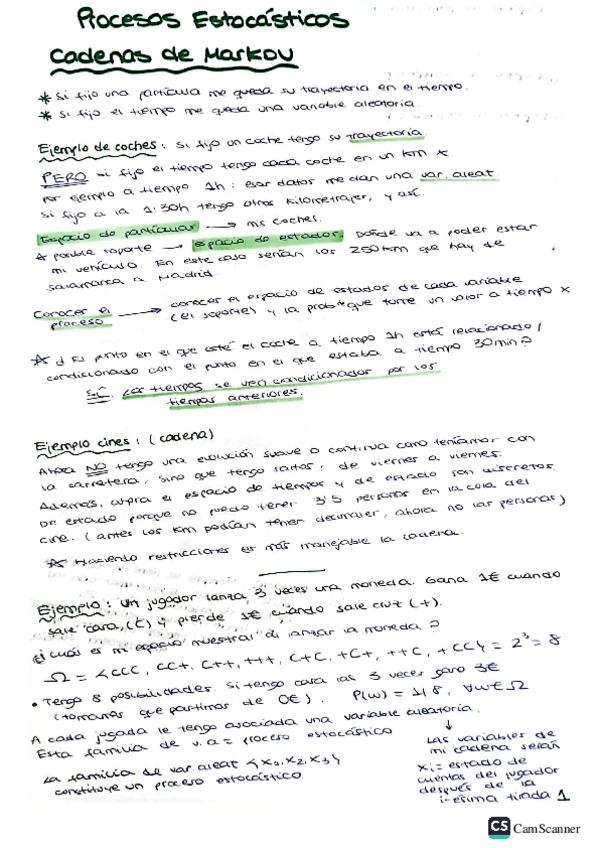 Procesos Estocásticos
Cadenas de Markov
* Si fijo una partícula me queda su trayectoria en el tiempo.
* Si fijo el tiempo me queda una variable aleatoria.
Ejemplo de coches: si fijo un coche tengo su trayectoria.
PERO si fijo el tiempo tengo cada coche en un km x
por ejemplo a tiempo 1h: esos datos me dan una var. aleat.
Si fijo a la 1:30h tengo otros kilometrajes, y así.
Espacio de partículas → mis coches.
* posible soporte → espacio de estados. Donde va a poder estar
mi vehículo. En este caso serían los 250km que hay de
Salamanca a Madrid
Conocer el → conocer el espacio de estados de cada variable
proceso (el soporte) y la prob de que tome un valor a tiempo x
* ¿El punto en el que esté el coche a tiempo 1h está relacionado/
condicionado con el punto en el que estaba a tiempo 30min?
Sí. Los tiempos se ven condicionados por los
tiempos anteriores.
Ejemplo cines: (cadena)
Ahora NO tengo una evolución suave o continua como teníamos con
la carretera, sino que tengo saltos, de viernes a viernes.
Además, ahora el espacio de tiempos y de estado son discretos.
De estado porque no puedo tener 3'5 personas en la cola del
cine. (antes los km podían tener decimales, ahora no las personas)
* Haciendo restricciones es más manejable la cadena.
Ejemplo: Un jugador lanza 3 veces una moneda. Gana 1€ cuando
sale cara (C) y pierde 1€ cuando sale cruz (+).
¿Cuál es mi espacio muestral al lanzar la moneda?
Ω = {CCC, CC+, C++, +++, C+C, +C+, ++C, +CC} = 2³ = 8
• Tengo 8 posibilidades. Si tengo cara las 3 veces gano 3€
(tomamos que partimos de 0€). P(w) = 1/8, ∀w∈Ω
A cada jugada le tengo asociada una variable aleatoria.
Esta familia de v.a = proceso estocástico
La familia de var. aleat {X₀, X₁, X₂, X₃}
constituye un proceso estocástico.
↓
Las variables de
mi cadena serán
xᵢ = estado de
cuentas del jugador
después de la
i-ésima tirada 1
CS CamScanner